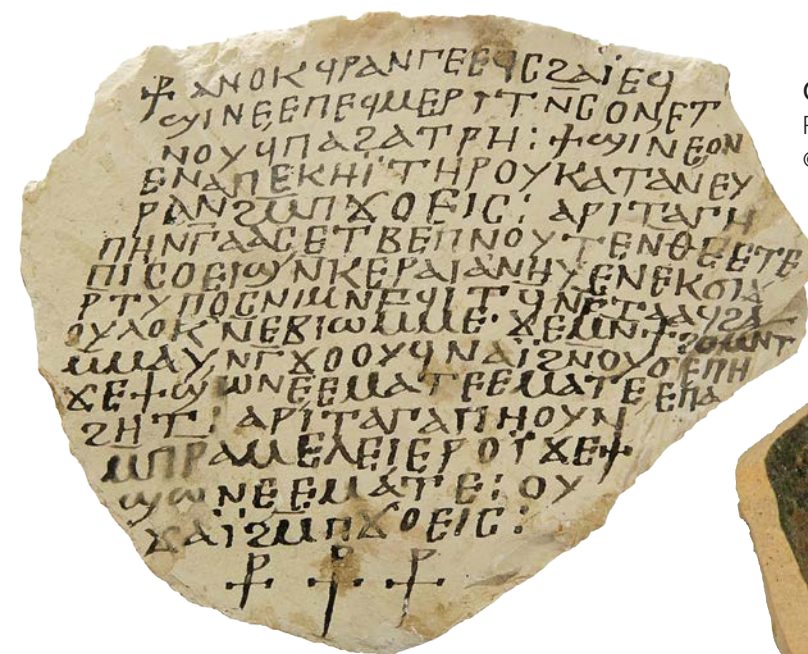 ⳨ ⲁⲛⲟⲕ ϥⲣⲁⲛⲅⲉ ⲉϥⲥϩⲁⲓ̈ ⲉϥ
ϣⲓⲛⲉ ⲉⲡⲉϥⲙⲉⲣⲓⲧ ⲛ̄ⲥⲟⲛ ⲉⲧ
ⲛⲟⲩϥ ⲡⲁϩⲁⲧⲣⲏ : ϯϣⲓⲛⲉ ⲟⲛ
ⲉⲛⲁⲡⲉⲕⲏⲓ̈ ⲧⲏⲣⲟⲩ ⲕⲁⲧⲁ ⲛⲉⲩ
ⲣⲁⲛ ϩⲙ̄ⲡϫⲟⲉⲓⲥ : ⲁⲣⲓⲧⲁⲅⲏ
ⲡⲏ ⲛⲅ̄ⲁⲁⲥ ⲉⲧⲃⲉⲡⲛⲟⲩⲧⲉ ⲛⲑⲉ ⲉⲧⲉ
ⲡⲓⲥⲟⲉⲓϣ ⲛⲕⲉⲣⲁⲓⲁ ⲛⲏⲩ ⲉⲛⲉⲕϭⲓϫ
ⲣⲧⲩⲡⲟⲥ ⲛⲓⲙ ⲛⲉϥⲓⲧϥ ⲛⲉⲧⲁⲁϥ ϩⲁ
ⲟⲩⲗⲟⲕ ⲛⲉⲃⲓⲱ ⲙⲙⲉ· ϫⲉⲙⲛ̄ϯϩⲟⲙⲛⲧ
ⲙⲙⲁⲩ ⲛⲅϫⲟⲟⲩϥ ⲛⲁⲓ̈ ϩⲛⲟⲩϭⲉⲡⲏ
ϫⲉϯϣⲱⲛⲉ ⲉⲙⲁⲧⲉ ⲉⲙⲁⲧⲉ ⲉⲡⲁ
ϩⲏⲧ : ⲁⲣⲓⲧⲁⲅⲁⲡⲏ ⲟⲩⲛ
ⲙⲡⲣⲁⲙⲉⲗⲉⲓ ⲉⲣⲟⲓ̈ ϫⲉϯ
ϣⲱⲛⲉ ⲉⲙⲁⲧⲉ : ⲟⲩ
ϫⲁⲓ̈ ϩⲙ̄ⲡϫⲟⲉⲓⲥ :
⳨ ⳨ ⳨